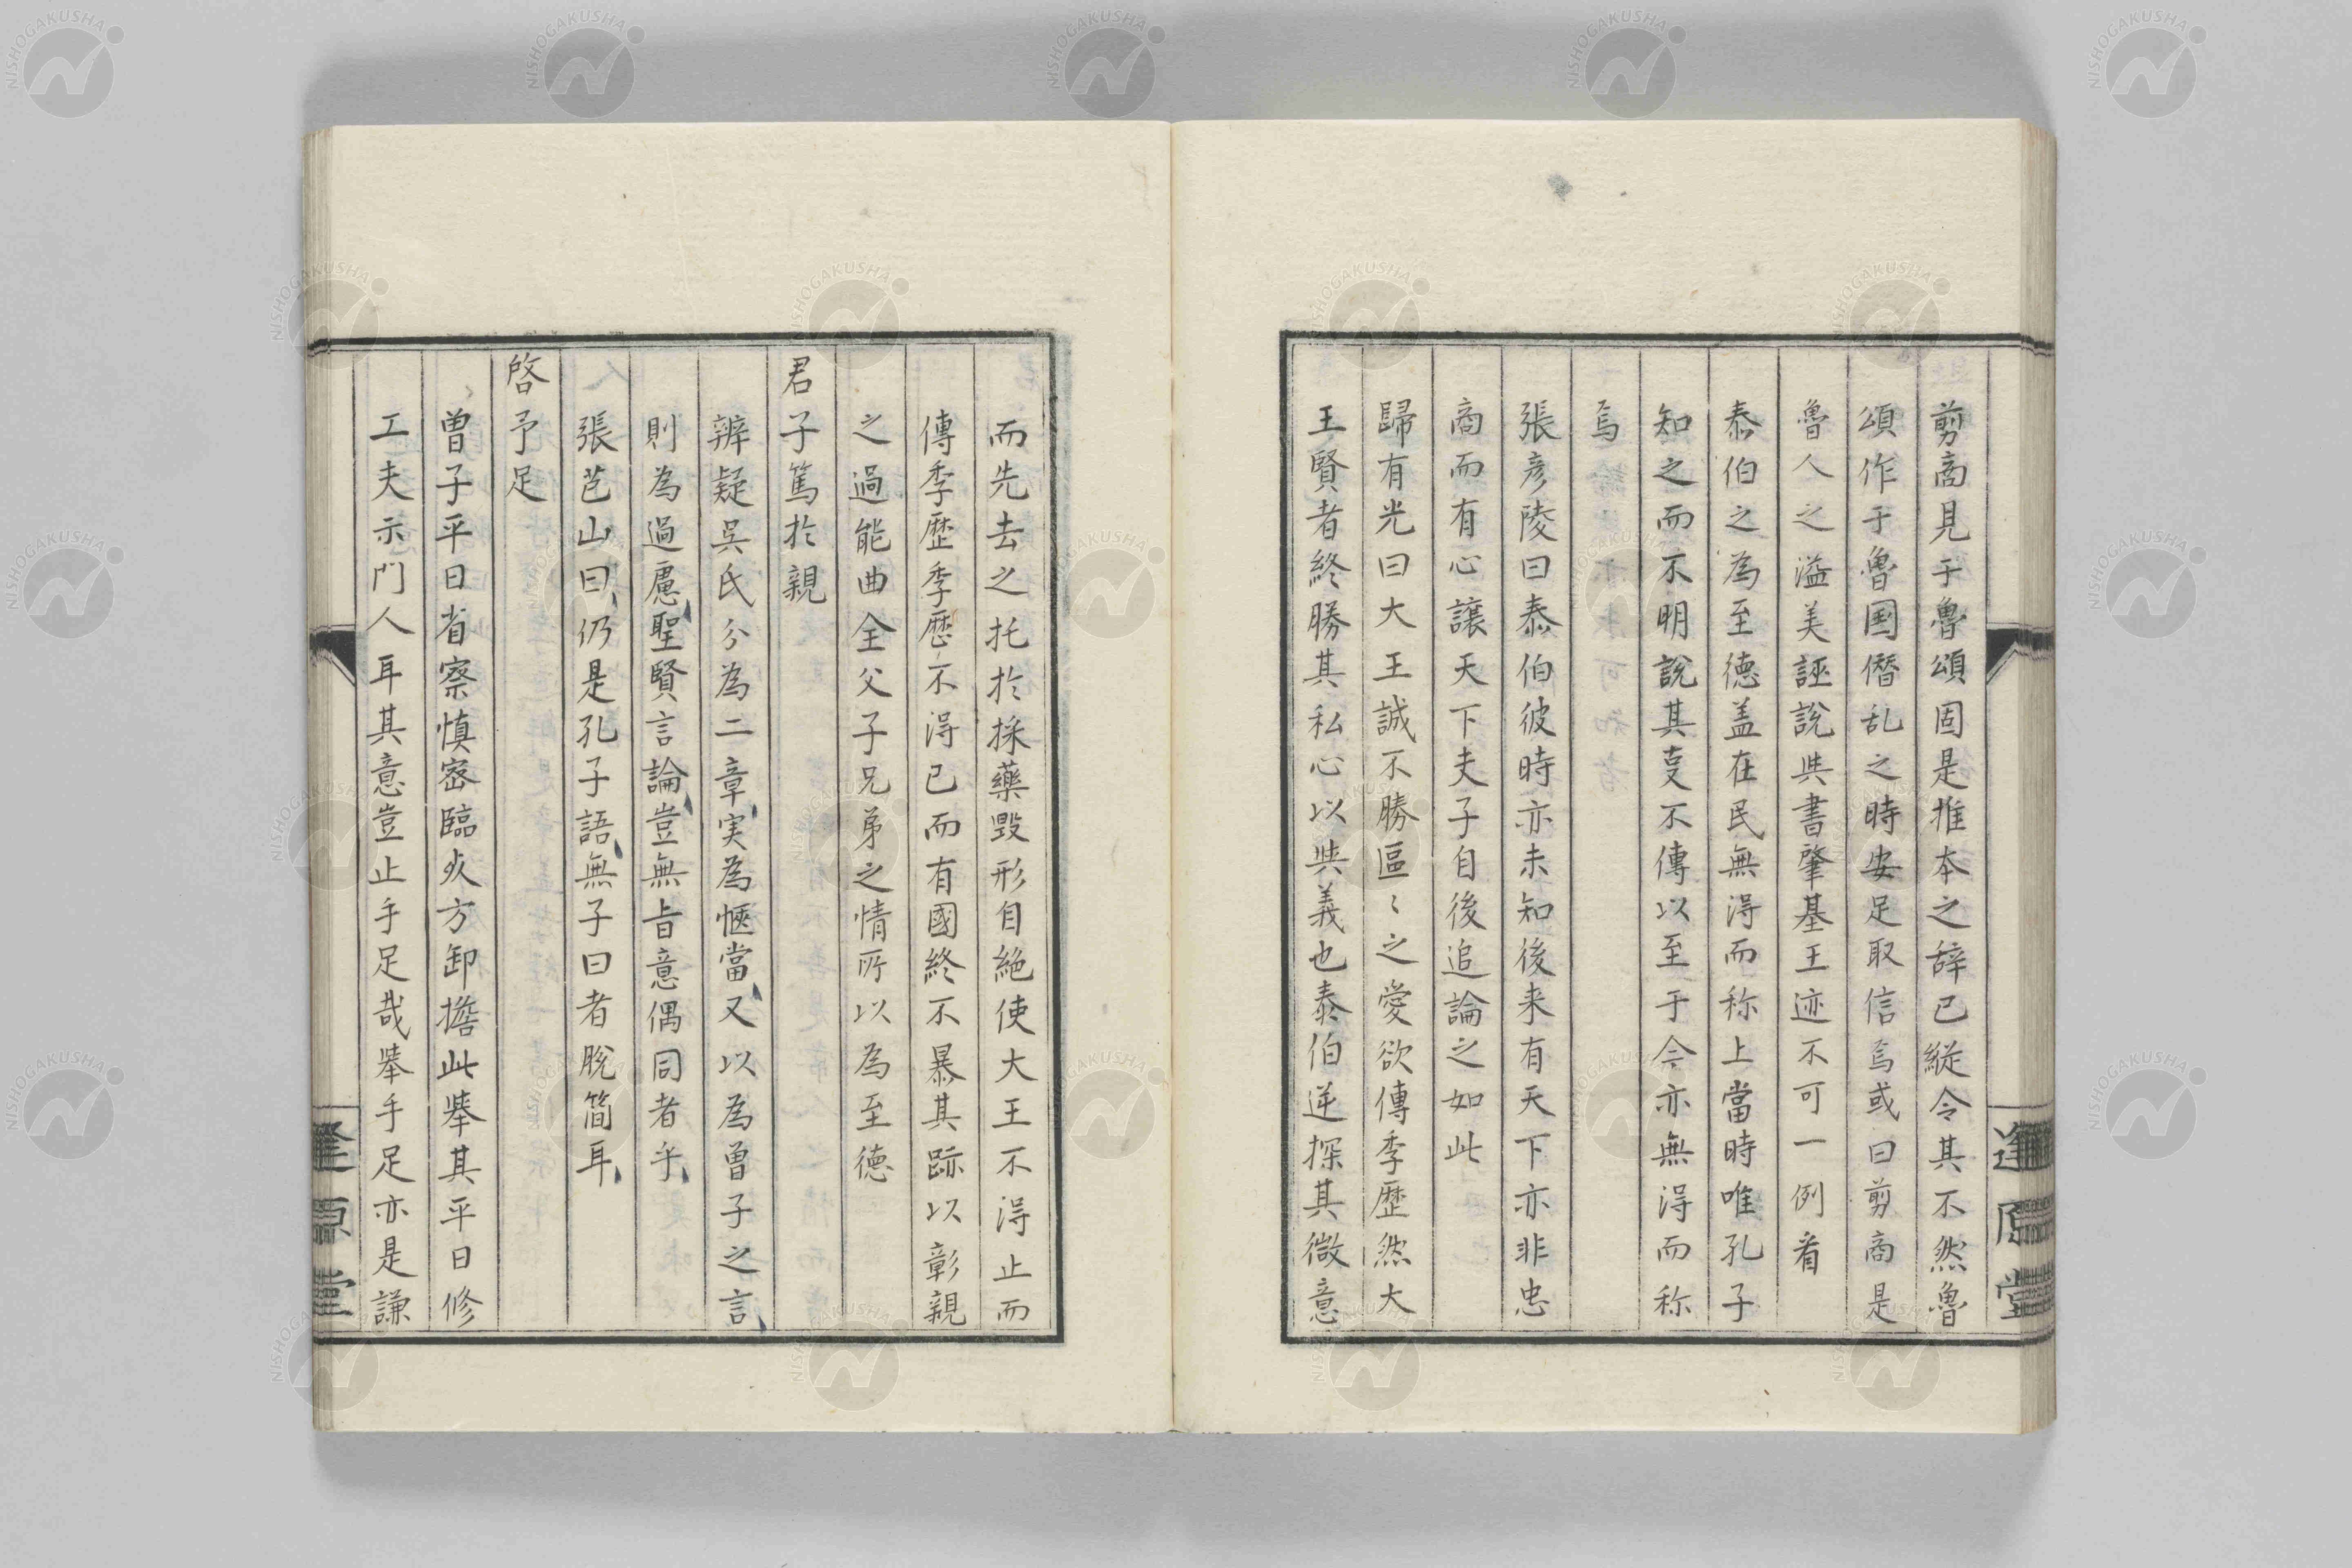 剪商見于魯頌固是推本之辞已縦令其不然魯
頌作于魯国僭乱之時安足取信焉或曰剪商是
魯人之溢美誣說与書肇基王迹不可一例看
泰伯之為至德盖在民無淂而称上當時唯孔子
知之而不明說其事不傳以至于今亦無淂而称
焉
張彦陵曰泰伯彼時亦未知後来有天下亦非忠
商而有心讓天下夫子自後追論之如此
歸有光曰大王誠不勝區〻之愛欲傳季歷然大
王賢者終勝其私心以与義也泰伯逆探其微意
而先去之托於採藥毀形自絶使大王不淂止而
傳季歴季歴不淂已而有國終不暴其跡以彰親
之過能曲全父子兄弟之情所以為至德
君子篤於親
辨疑吳氏分為二章実為愜當又以為曾子之言
則為過慮聖賢言論豈無旨意偶同者乎
張芑山曰仍是孔子語無子曰者脫简耳
啓予足
曽子平日省察慎宻臨疾方卸擔此挙其平日修
工夫示門人耳其意豈止手足哉挙手足亦是謙
逢原堂
NISHOGAKUSHA